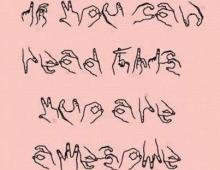 if you can
read this
yuo are
amesowe